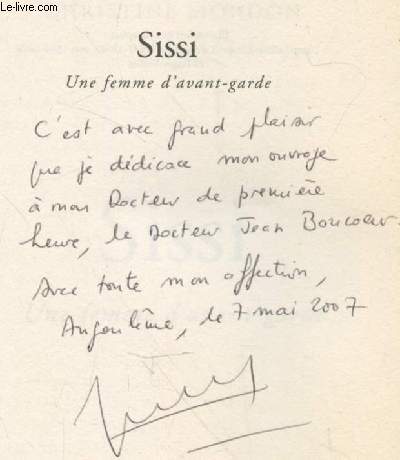 Le-livre.com
Sissi
Une femme d'avant-garde
C'est avec grand plaisir
que je dédicace mon ouvrage
à mon Docteur de première
heure, le Docteur Jean Boucoeur.
Avec toute mon affection,
Angoulême, le 7 mai 2007